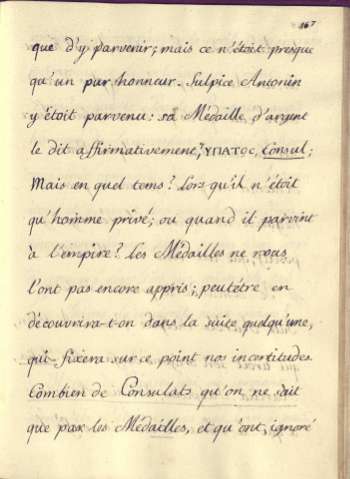 167
que d'y parvenir; mais ce n'étoit presque
qu'un pur honneur. Sulpice Antonin
y étoit parvenu: sa Médaille d'argent
le dit affirmativement, ΥΠΑΤΟC, Consul;
Mais en quel tems? Lors qu'il n'étoit
qu'homme privé; ou quand il parvint
à l'empire? Les Médailles ne nous
l'ont pas encore appris; peutétre en
découvrira-t-on dans la suite quelqu'une,
qui fixera sur ce point nos incertitudes.
Combien de Consulats qu'on ne sait
que par les Médailles, et qu'ont ignoré